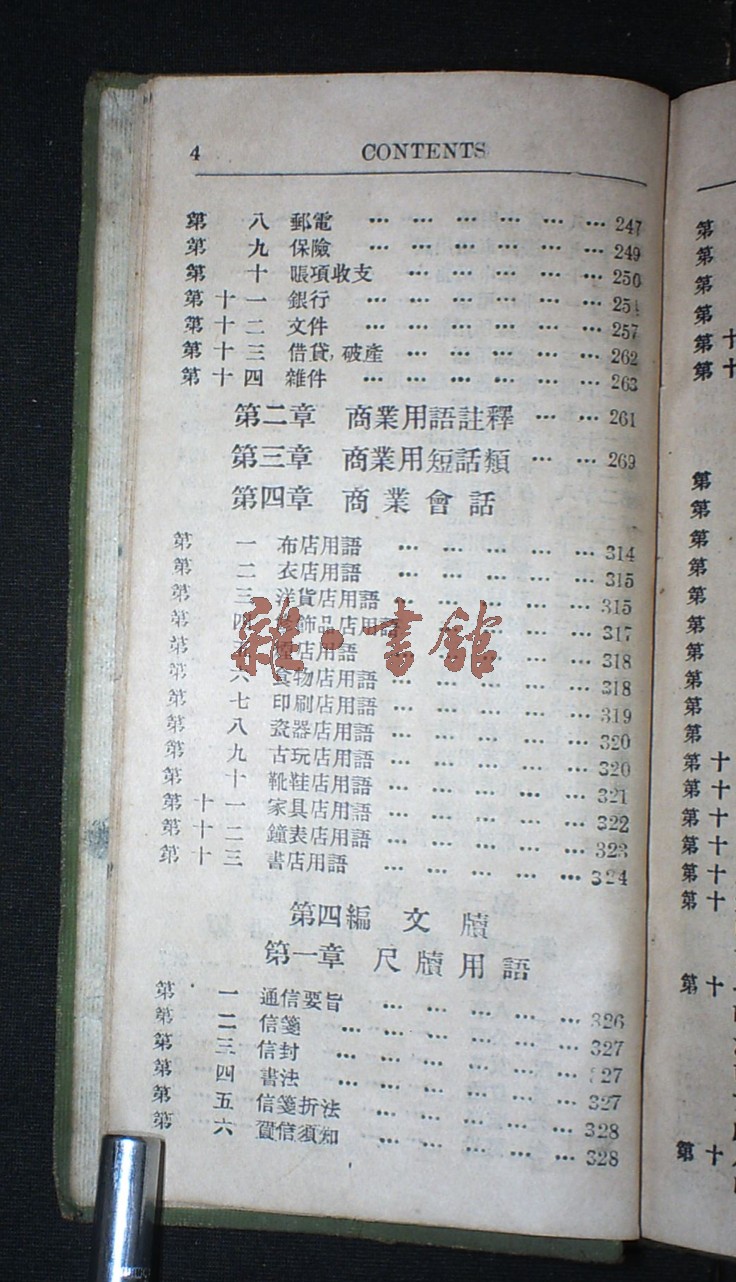 4 CONTENTS
第 八 郵電 … … … … … … 247
第 九 保險 … … … … … … 249
第 十 賬項收支 … … … … … 250
第十一 銀行 … … … … … … 25
第十二 文件 … … … … … … 257
第十三 借貸,破產 … … … … … 262
第十四 雜件 … … … … … … 263
第二章 商業用語註釋 … … 261
第三章 商業用短話類 … … 269
第四章 商業會話
第 一 布店用語 … … … … … 314
第 二 衣店用語 … … … … … 315
第 三 洋貨店用語 … … … … 315
第 四 飾品店用語 … … … 317
第 店用語 … … … … … 318
第 六 食物店用語 … … … … … 318
第 七 印刷店用語 … … … … … 319
第 八 瓷器店用語 … … … … … 320
第 九 古玩店用語 … … … … … 320
第 十 靴鞋店用語 … … … … … 321
第十一 家具店用語 … … … … … 322
第十二 鐘表店用語 … … … … … 323
第十三 書店用語 … … … … … 324
雜·書館
第四編 文牘
第一章 尺牘用語
第 一 通信要旨 … … … … … 326
第 二 信箋 … … … … … … 327
第 三 信封 … … … … … … 27
第 四 書法 … … … … … … 327
第 五 信箋折法 … … … … … 328
第 六 寘信須知 … … … … … 328
第
第
第
第
第十
第十
第
第
第
第
第
第
第
第
第
第
第十
第十
第十
第十
第十
第十
第十
第十